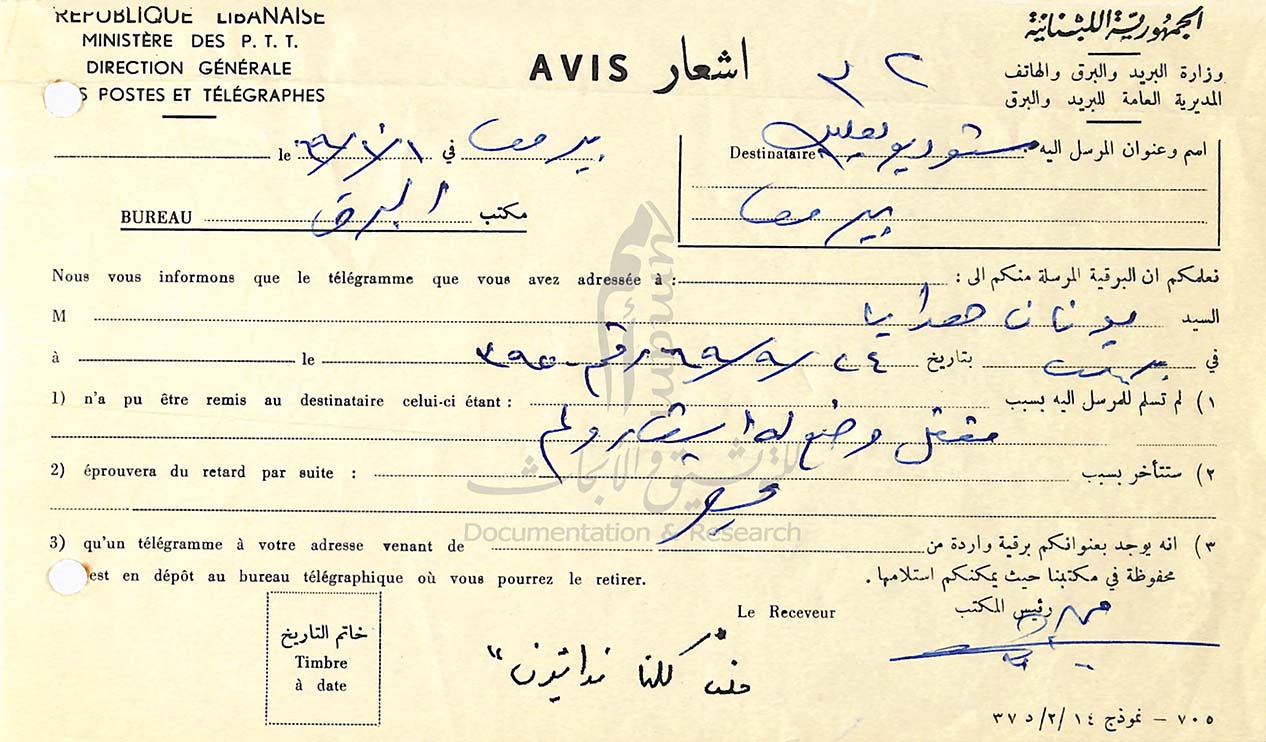 REPUBLIQUE LIBANAISE
MINISTÈRE DES P. T. T.
DIRECTION GÉNÉRALE
S POSTES ET TÉLÉGRAPHES
الجمهوريّة اللبنانيّة
وزارة البريد والبرق والهاتف
المديرية العامة للبريد والبرق
AVIS اشعار
le في
BUREAU البرق مكتب
اسم وعنوان المرسل اليه ستوديو Destinataire
Nous vous informons que le télégramme que vous avez adressée à : نعلمكم ان البرقية المرسلة منكم الى :
M السيد
à le بتاريخ ٢٤ / ٩ / ٦٩ رقم في
1) n'a pu être remis au destinataire celui-ci étant : ١) لم تسلم للمرسل اليه بسبب
مقفل وضع له اشعار ولم
2) éprouvera du retard par suite : ٢) ستتأخر بسبب
يحضر
3) qu'un télégramme à votre adresse venant de ٣) انه يوجد بعنوانكم برقية واردة من
est en dépôt au bureau télégraphique où vous pourrez le retirer. محفوظة في مكتبنا حيث يمكنكم استلامها .
Le Receveur رئيس المكتب
خاتم التاريخ
Timbre
à date
كلنا فدائيون "
٧٠٥ – نموذج ١٤ /٢/ د ٣٧
umam
للتوثيق والأبحاث
Documentation & Research